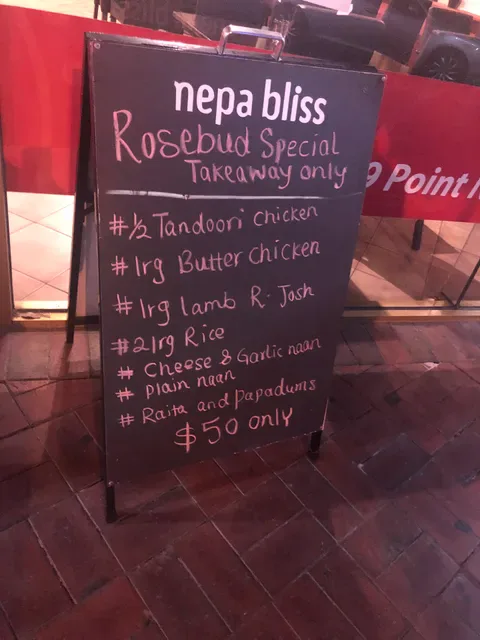 nepa bliss
Rosebud Special
Takeaway only
#½ Tandoori chicken
#1rg Butter chicken
#1rg lamb R. Josh
#2lrg Rice
# Cheese & Garlic naan
# Plain naan
# Raita and Papadums
$50 only
9 Point